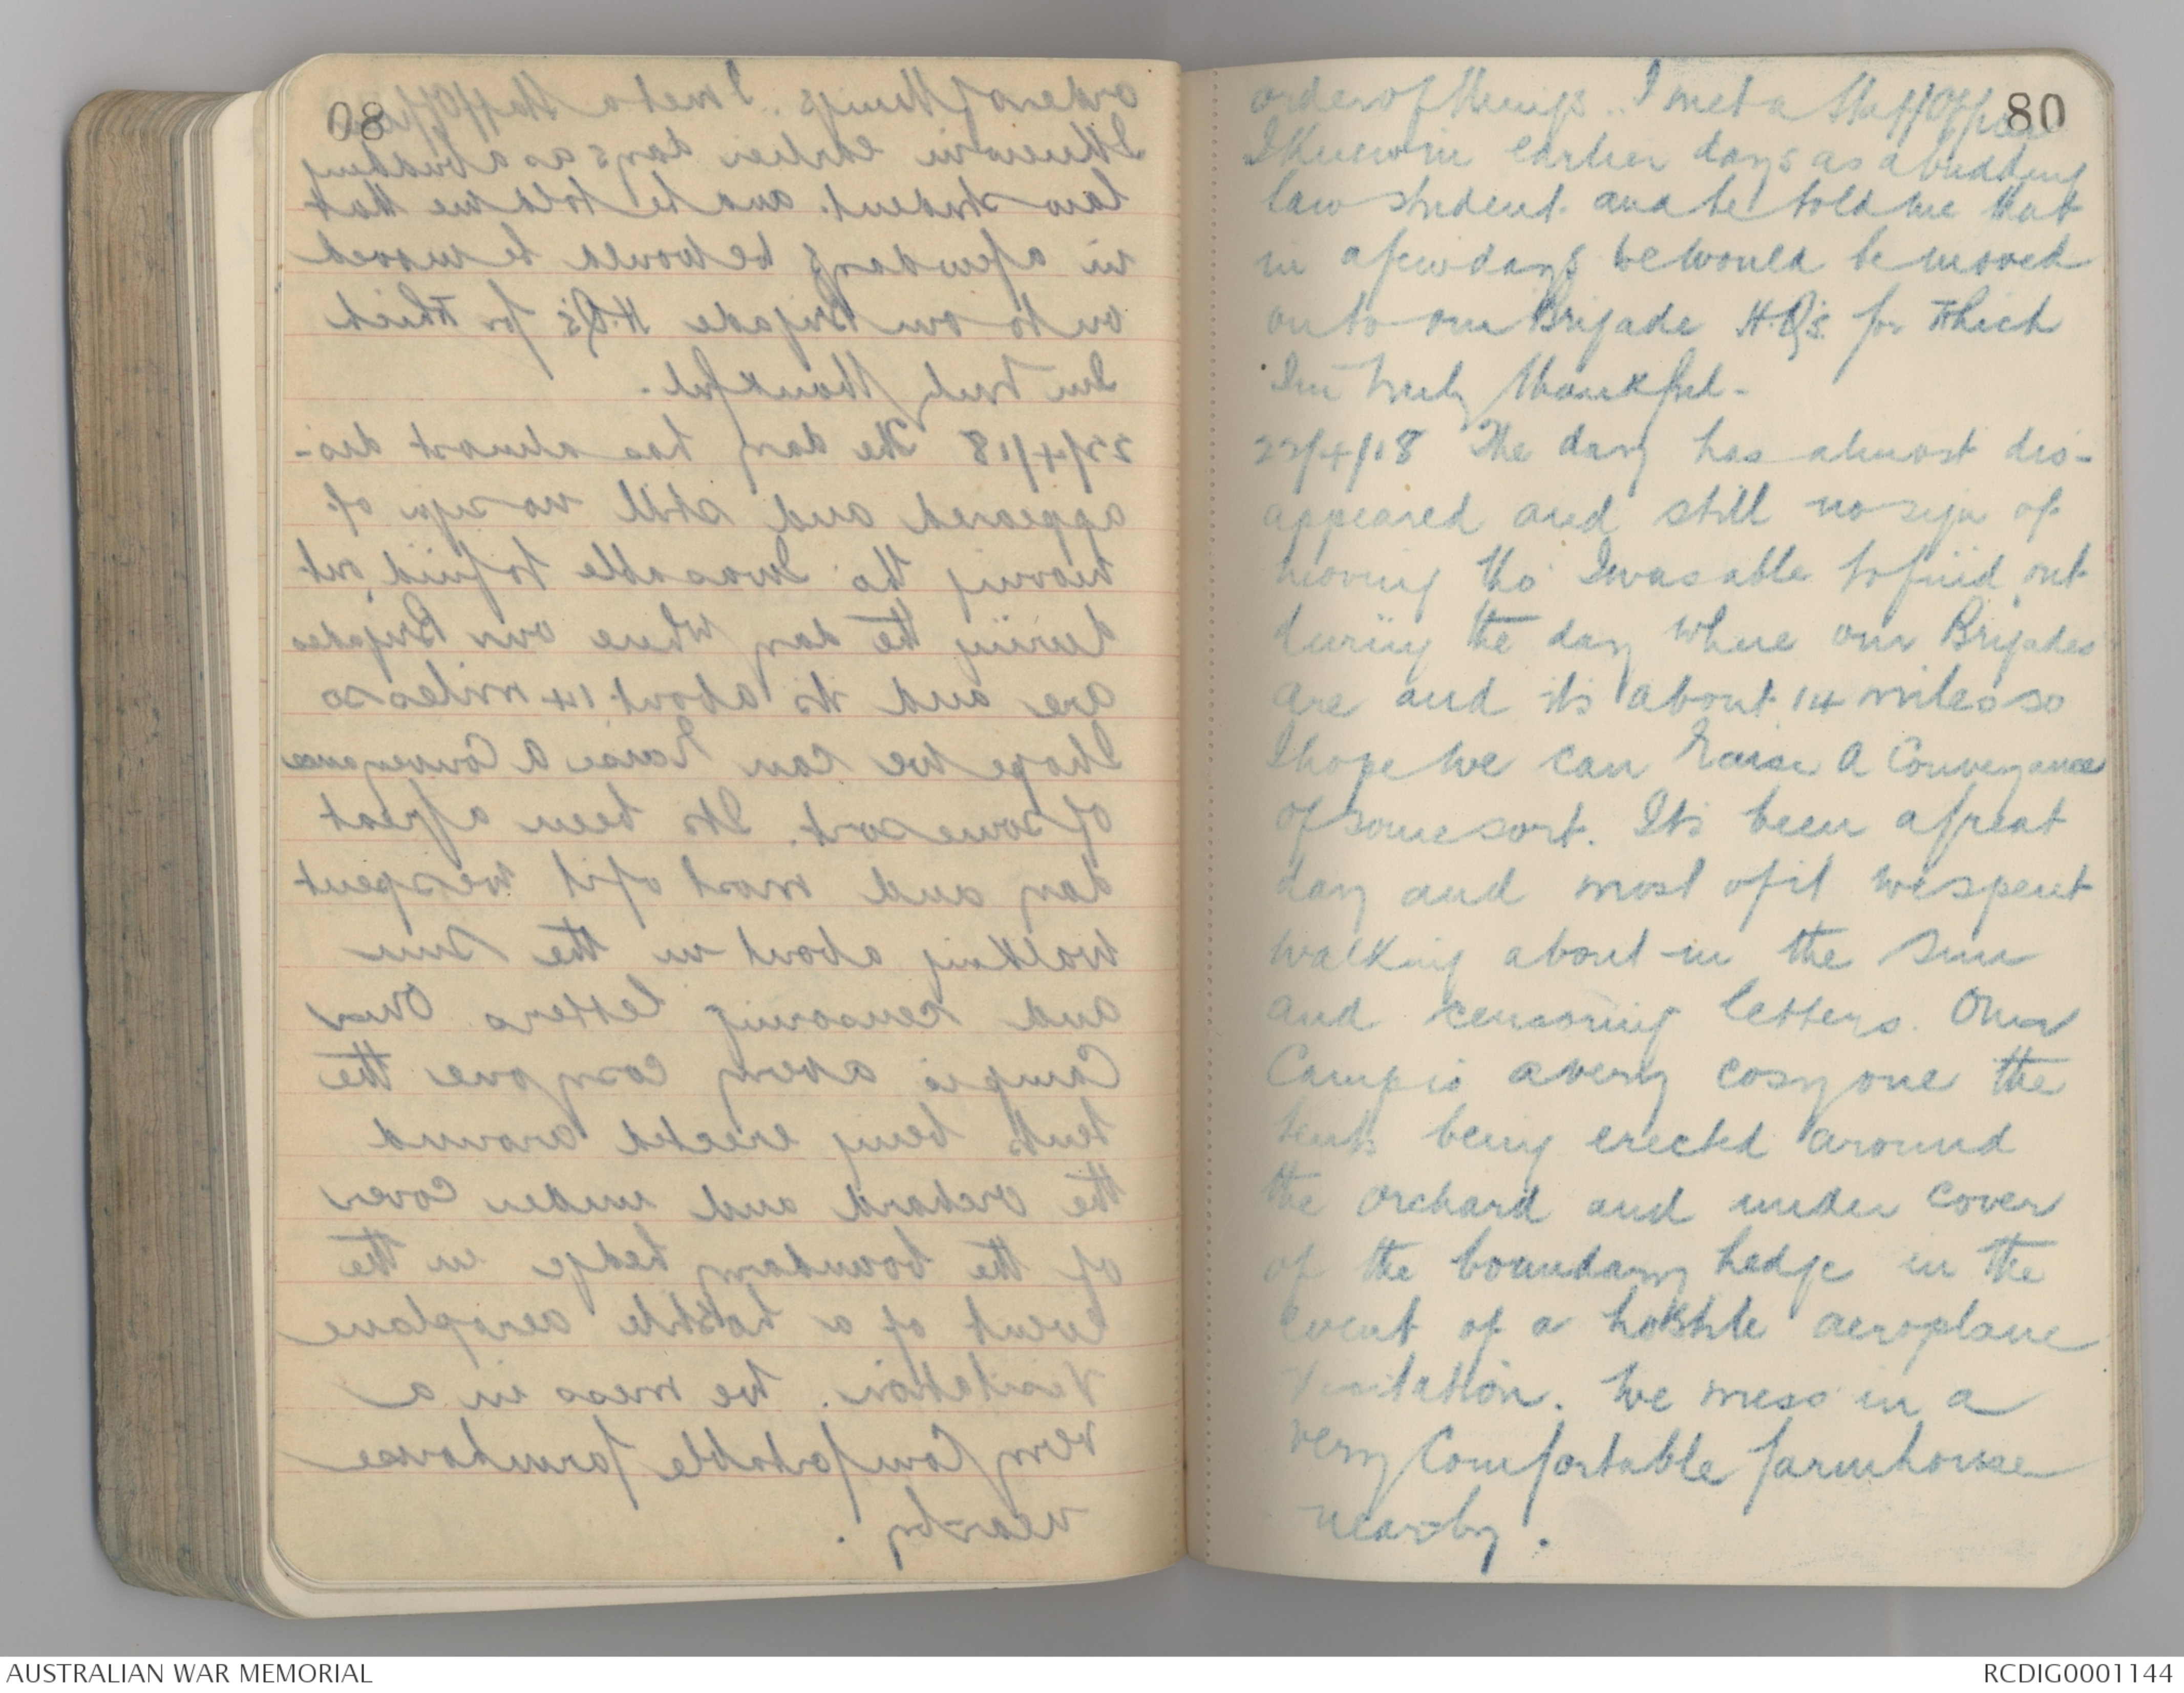 80
order of things.. I met a Staff Officer
I knew in earlier days as a budding
law student. and he told me that
in a few days he would be moved
on to our Brigade H.Q's. for which
I'm truly thankful -
22/4/18 The day has almost dis-
appeared and still no sign of
moving tho' I was able to find out
during the day where our Brigades
are and its about 14 miles so
I hope we can raise a conveyance
of some sort. Its been a great
day and most of it we spent
walking about in the sun
and censoring letters. Our
Camp is a very cosy one the
tents being erected around
the orchard and under cover
of the boundary hedge in the
event of a hostile aeroplane
visitation. We mess in a
very Comfortable farmhouse
near-by.
AUSTRALIAN WAR MEMORIAL
RCDIG0001144